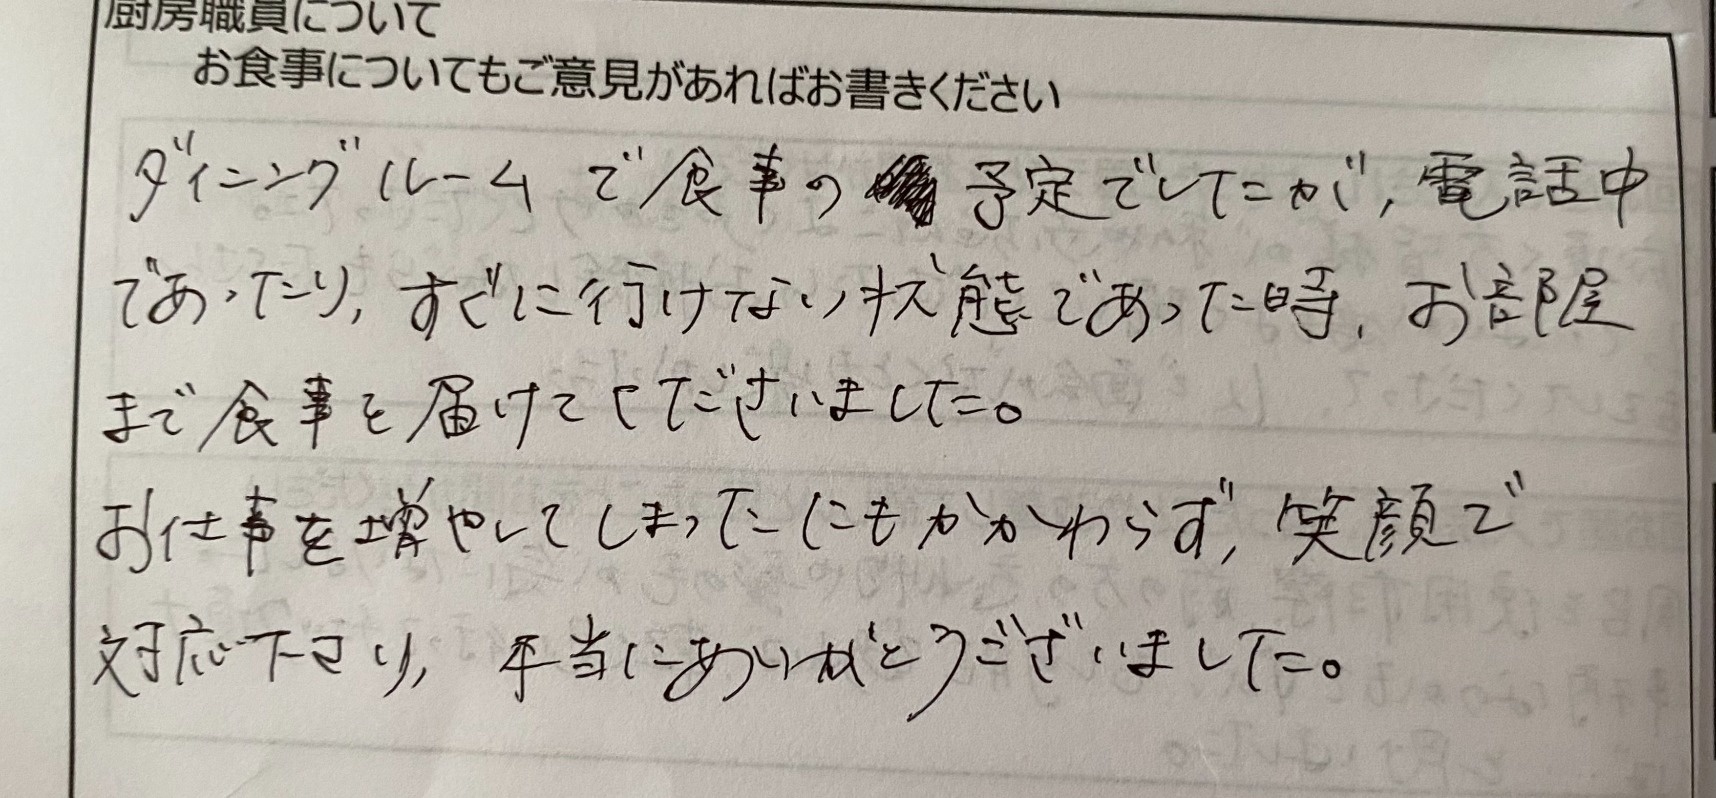 厨房職員について
お食事についてもご意見があればお書きください
ダイニングルームで食事の 予定でしたが、電話中
であったり、すぐに行けない状態であった時、お部屋
まで食事を届けてくださいました。
お仕事を増やしてしまったにもかかわらず、笑顔で
対応下さり、本当にありがとうございました。